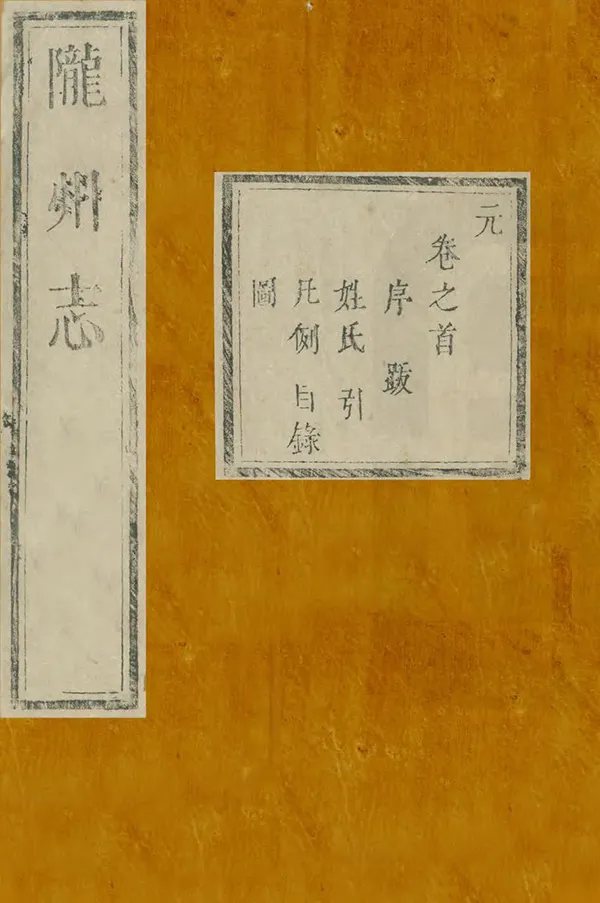 隴州志
元
卷之首
序跋
姓氏引
凡例目錄
圖